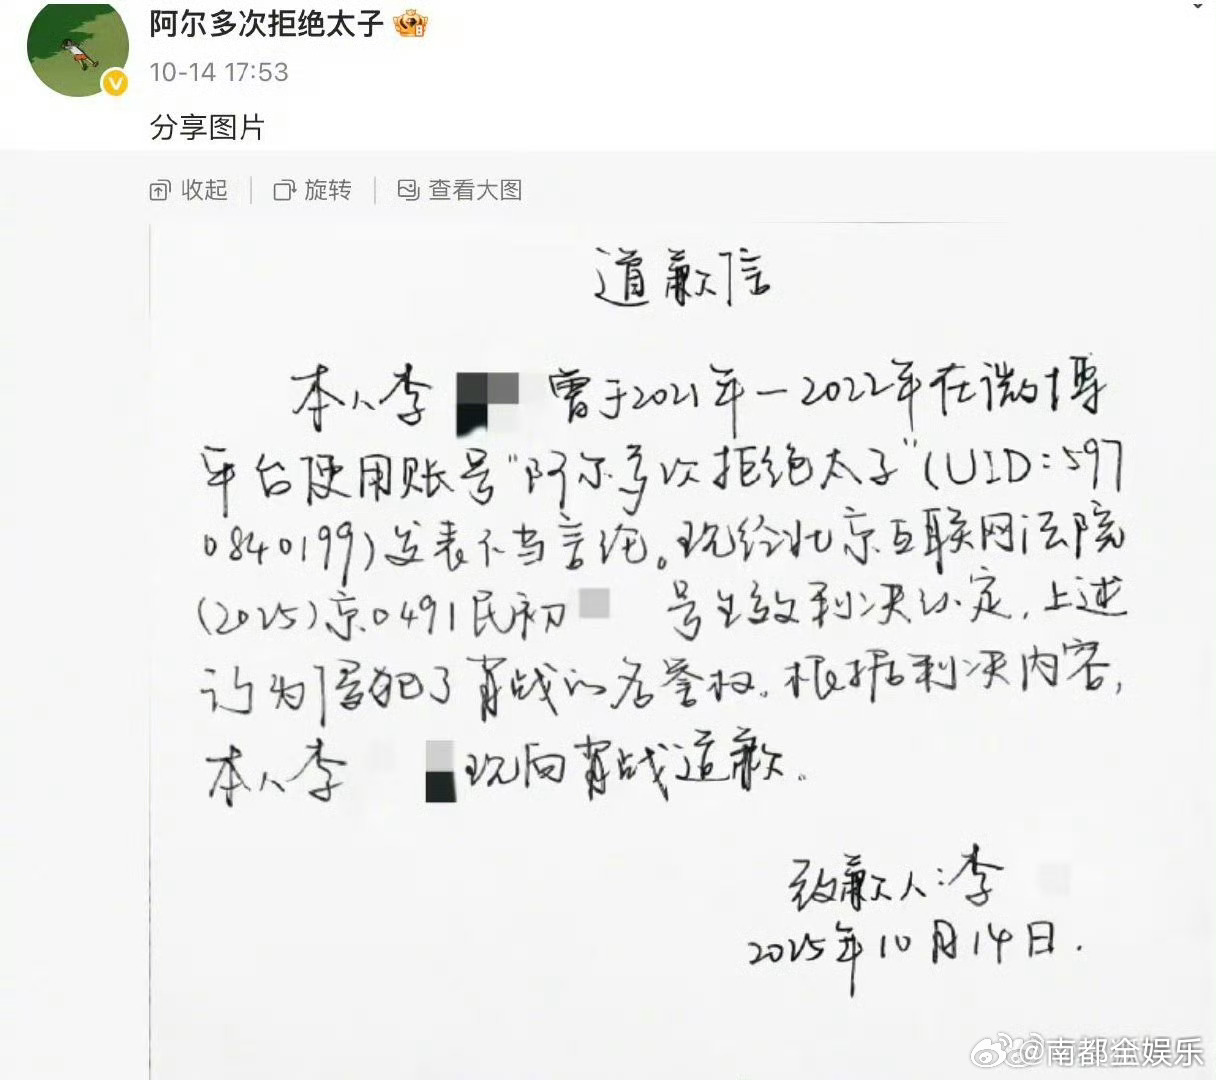 阿尔多次拒绝太子
10-14 17:53
分享图片
收起 旋转 查看大图
道歉信
本人李 曾于2021年-2022年在微博
平台使用账号"阿尔多次拒绝太子"(UID:597
0840199)发表不当言论。现经北京互联网法院
(2025)京0491民初 号生效判决认定,上述
行为侵犯了肖战的名誉权。根据判决内容,
本人李 现向肖战道歉。
致歉人:李
2025年10月14日.
@南都金娱乐